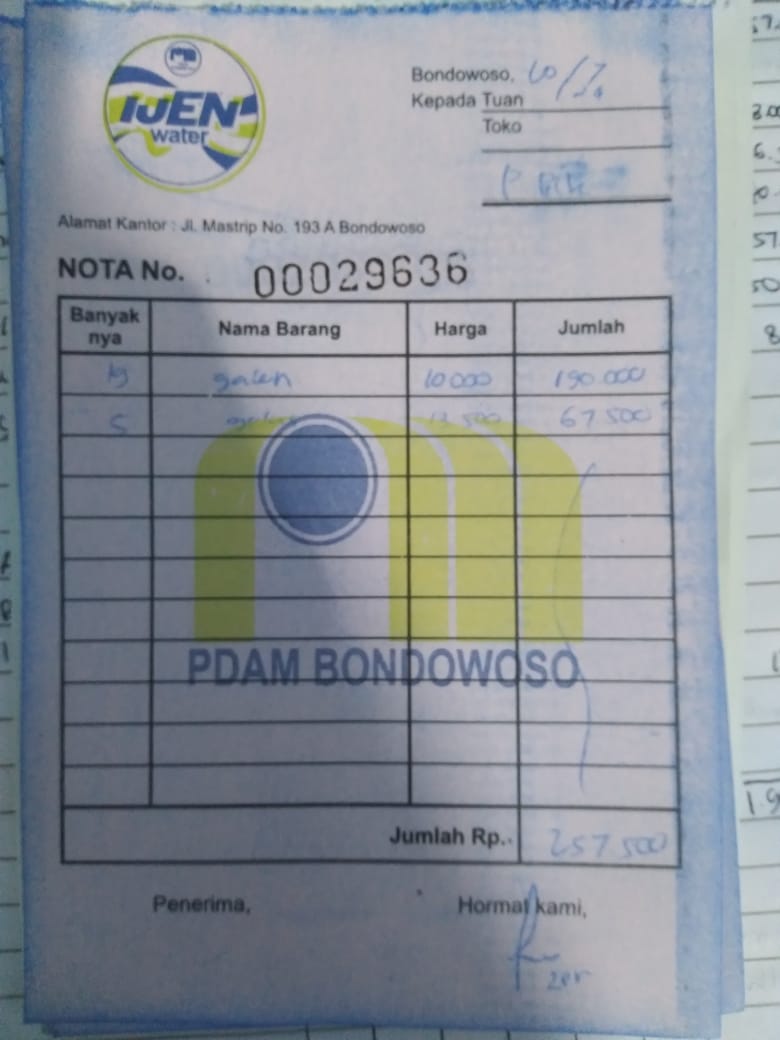 IJEN
water
Bondowoso,
Kepada Tuan
Toko
Alamat Kantor : Jl. Mastrip No. 193 A Bondowoso
NOTA No. 00029636
Banyak nya Nama Barang Harga Jumlah
19 galon 10 000 190.000
5 13 500 67 500
PDAM BONDOWOSO
Jumlah Rp. 257 500
Penerima, Hormat kami,